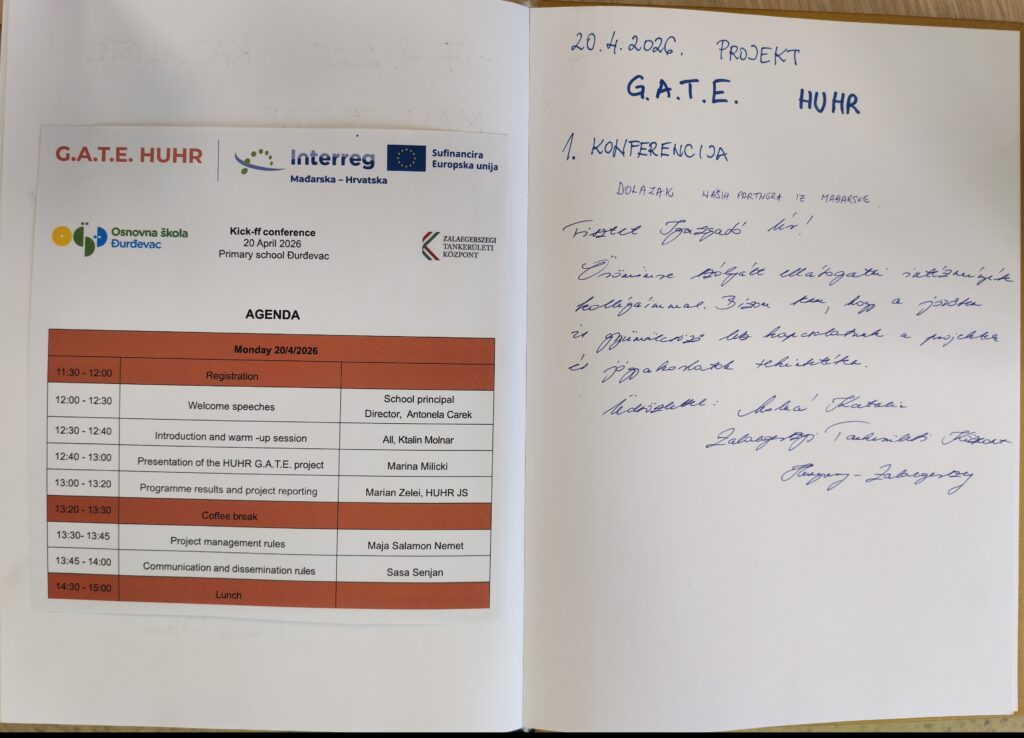 G.A.T.E. HUHR
Interreg
Mađarska – Hrvatska
Sufinancira
Europska unija
Osnovna škola
Đurđevac
Kick-ff conference
20 April 2026
Primary school Đurđevac
ZALAEGERSZEGI
TANKERÜLETI
KÖZPONT
AGENDA
Monday 20/4/2026
11:30 - 12:00 Registration
12:00 - 12:30 Welcome speeches School principal
Director, Antonela Carek
12:30 - 12:40 Introduction and warm -up session All, Ktalin Molnar
12:40 - 13:00 Presentation of the HUHR G.A.T.E. project Marina Milicki
13:00 - 13:20 Programme results and project reporting Marian Zelei, HUHR JS
13:20 - 13:30 Coffee break
13:30- 13:45 Project management rules Maja Salamon Nemet
13:45 - 14:00 Communication and dissemination rules Sasa Senjan
14:30 - 15:00 Lunch
20.4.2026. PROJEKT
G.A.T.E. HUHR
1. KONFERENCIJA
DOLAZAK NAŠIH PARTNERA IZ MAĐARSKE.
Tisztelt Igazgató Úr!
Örömünkre ellátogatni
kollégáimmal. Bízom hogy a
is gyümölcsöző lesz kapcsolatunk a projektek
és jógyakorlatok tekintetében.
Üdvözlettel: Katalin
Zalaegerszegi Tankerületi Központ
Hungary - Zalaegerszeg